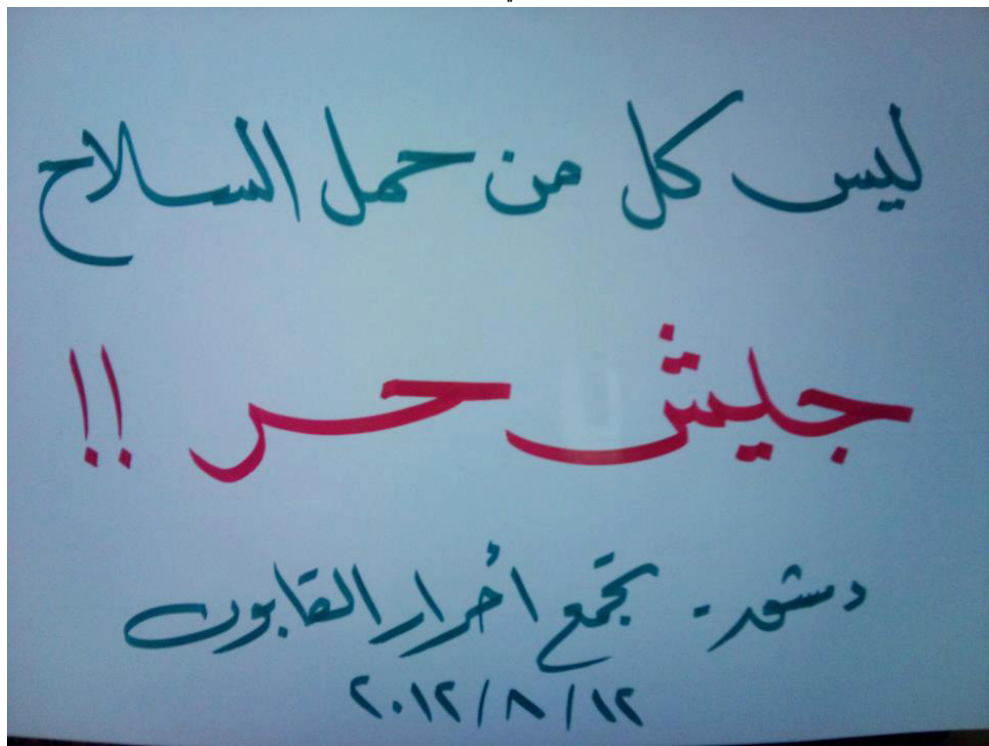 ليس كل من حمل السلاح
جيش حر !!
دمشق - تجمع أحرار القابون
٢٠١٢/٨/١٢